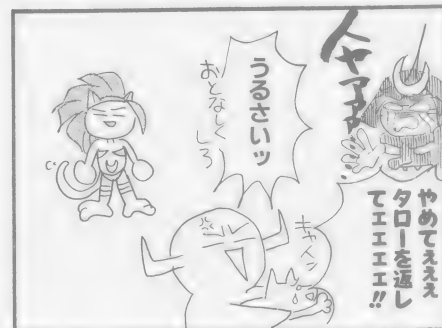 イヤアアア
やめてぇぇぇ
タローを返し
てエエエエ!!
うるさいッ
おとなしく
しろ
キャイン